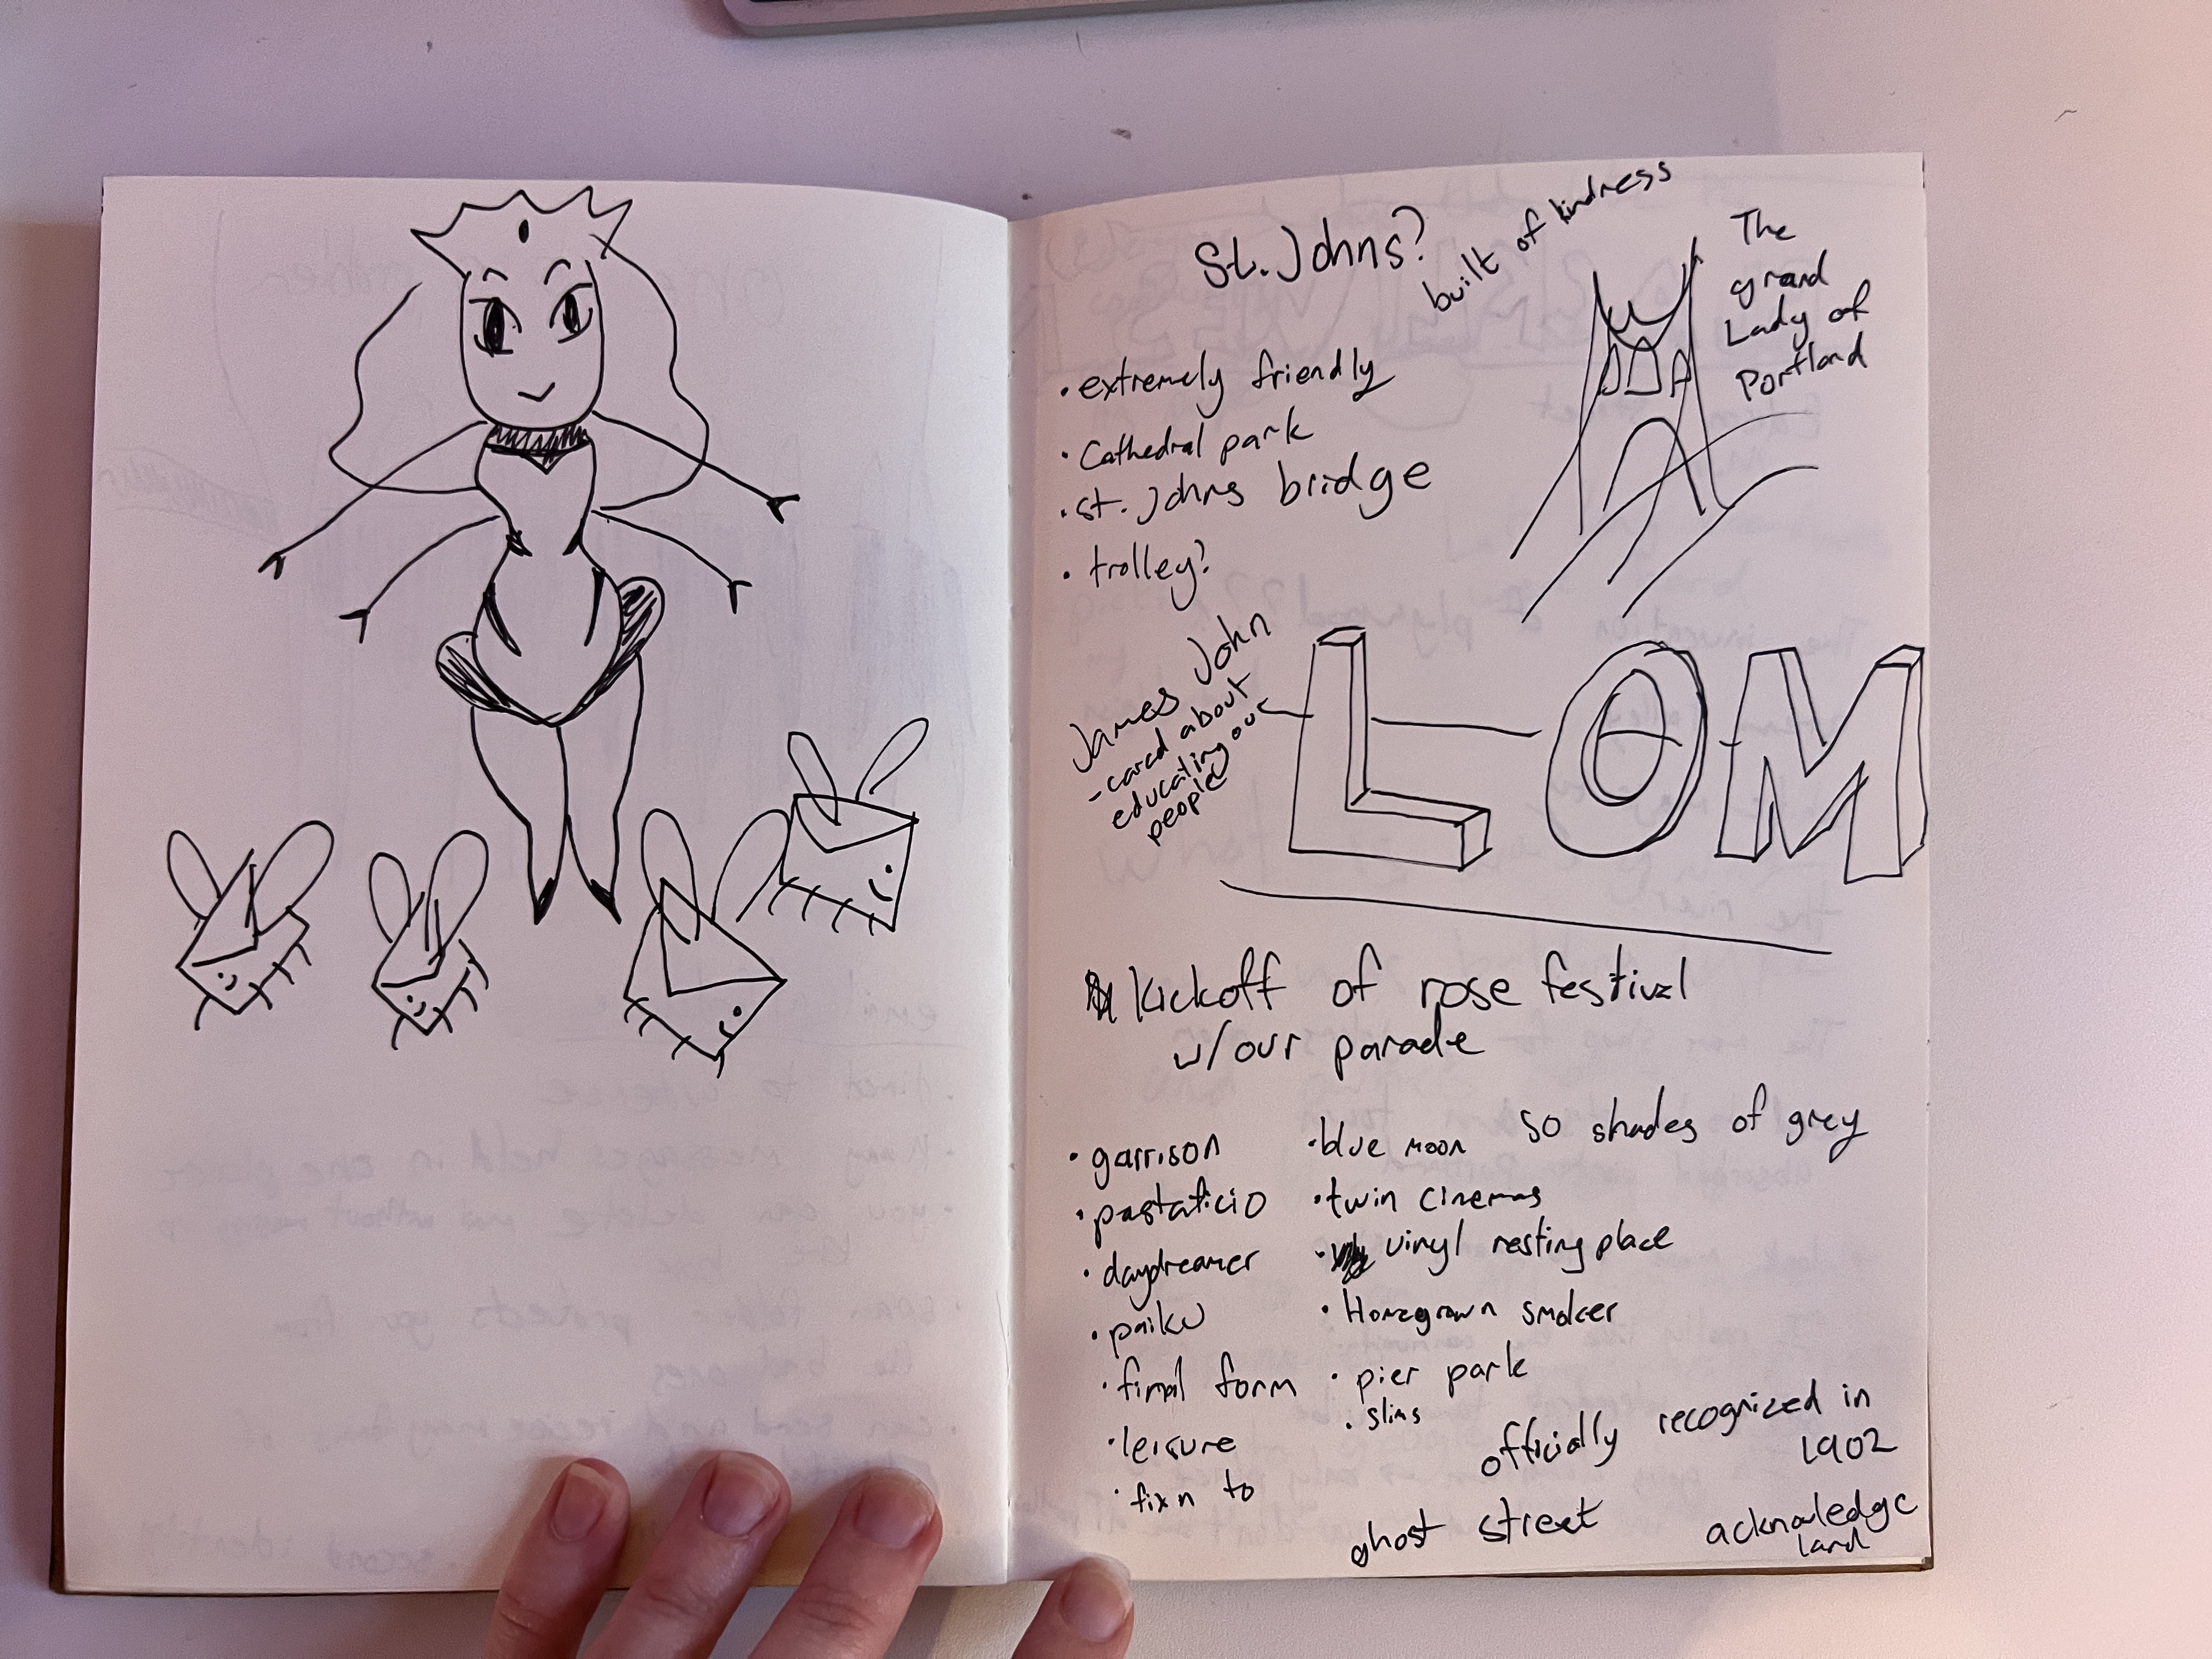 St. Johns?
built of kindness
The
grand
Lady of
Portland
• extremely friendly
• Cathedral park
• st. Johns bridge
• trolley?
James John
- cared about
educating our
people
LOM
Kickoff of rose festival
w/ our parade
• garrison
• pastaficio
• daydreamer
• paiku
• final form
• leisure
• fixn to
• blue moon
50 shades of grey
• twin cinemas
• vinyl resting place
• Homegrown smoker
• pier park
• slims
officially recognized in
1902
ghost street
acknowledge
land